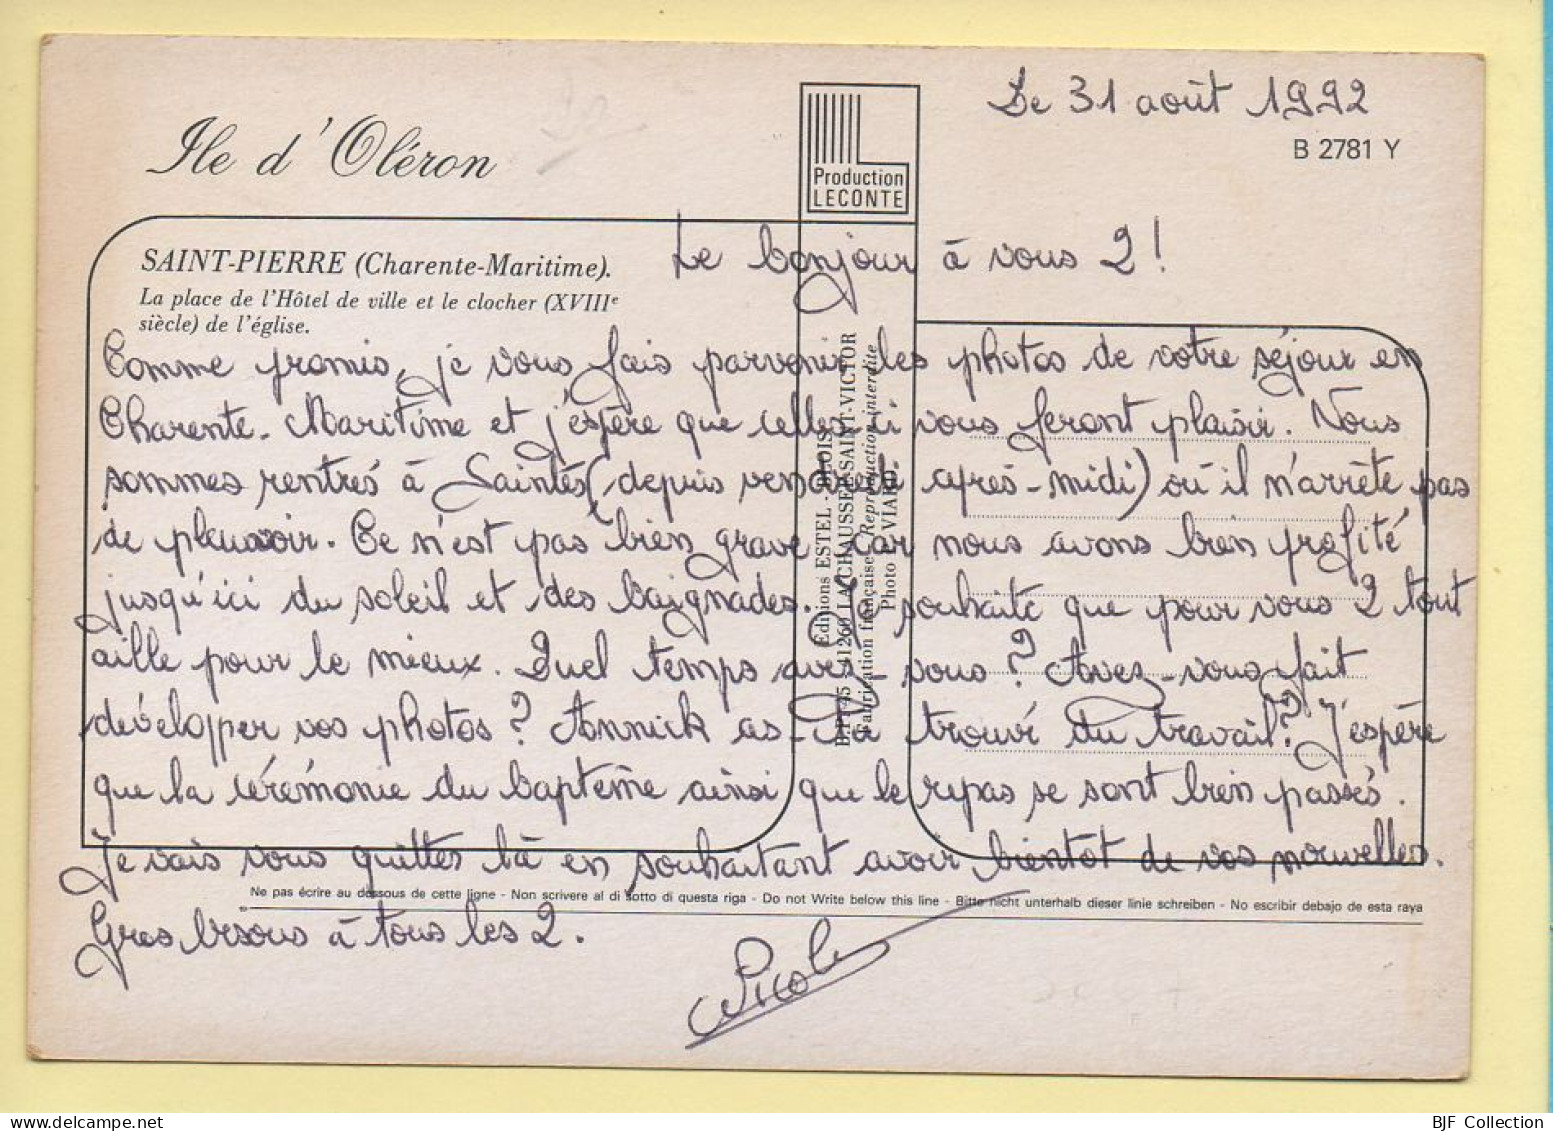 Le 31 août 1992
B 2781 Y
Ile d'Oléron
Production
LECONTE
SAINT-PIERRE (Charente-Maritime).
La place de l'Hôtel de ville et le clocher (XVIIIe
siècle) de l'église.
Le bonjour à vous 2!
Comme promis, je vous fais parvenir les photos de votre séjour en
Charente-Maritime et j'espère que celles-ci vous feront plaisir. Nous
sommes rentrés à Saintes (depuis vendredi après-midi) où il n'arrête pas
de pleuvoir. Ce n'est pas bien grave car nous avons bien profité
jusqu'ici du soleil et des baignades. Je souhaite que pour vous 2 tout
aille pour le mieux. Quel temps avez-vous? Avez-vous fait
développer vos photos? Annick as-tu trouvé du travail? J'espère
que la cérémonie du baptême ainsi que le repas se sont bien passés.
Je vais vous quitter là en souhaitant avoir bientôt de vos nouvelles.
Gros bisous à tous les 2.
Nicole
Editions ESTEL - BLOIS
B.P. 45 - 41260 LA CHAUSSÉE-SAINT-VICTOR
Fabrication française. Reproduction interdite
Photo VIARD
Ne pas écrire au dessous de cette ligne - Non scrivere al di sotto di questa riga - Do not Write below this line - Bitte nicht unterhalb dieser linie schreiben - No escribir debajo de esta raya
BJF Collection